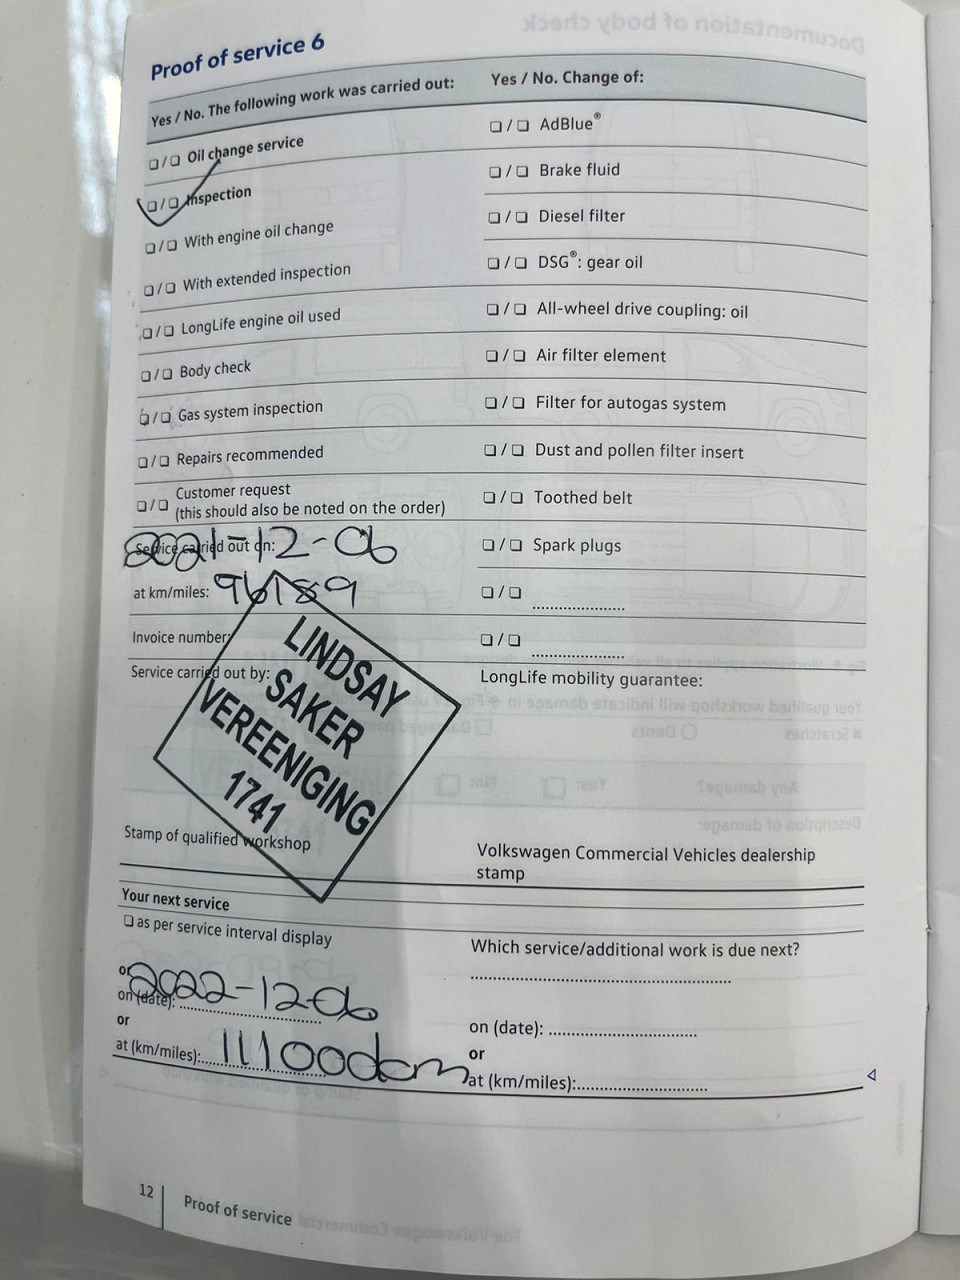 Documentation of body check
Proof of service 6
Yes / No. The following work was carried out:
Yes / No. Change of:
❏ / ❏ Oil change service
❏ / ❏ Inspection
❏ / ❏ With engine oil change
❏ / ❏ With extended inspection
❏ / ❏ LongLife engine oil used
❏ / ❏ Body check
❏ / ❏ Gas system inspection
❏ / ❏ Repairs recommended
❏ / ❏ Customer request
(this should also be noted on the order)
❏ / ❏ AdBlue®
❏ / ❏ Brake fluid
❏ / ❏ Diesel filter
❏ / ❏ DSG®: gear oil
❏ / ❏ All-wheel drive coupling: oil
❏ / ❏ Air filter element
❏ / ❏ Filter for autogas system
❏ / ❏ Dust and pollen filter insert
❏ / ❏ Toothed belt
❏ / ❏ Spark plugs
❏ / ❏ ....................
❏ / ❏ ....................
Service carried out on: 2021-12-06
at km/miles: 96189
Invoice number:
Service carried out by:
LINDSAY
SAKER
VEREENIGING
1741
Stamp of qualified workshop
LongLife mobility guarantee:
Volkswagen Commercial Vehicles dealership
stamp
Your next service
❏ as per service interval display
or
on (date): 2022-12-06
or
at (km/miles): 111000
Which service/additional work is due next?
on (date): ....................
or
at (km/miles): ....................
12
Proof of service